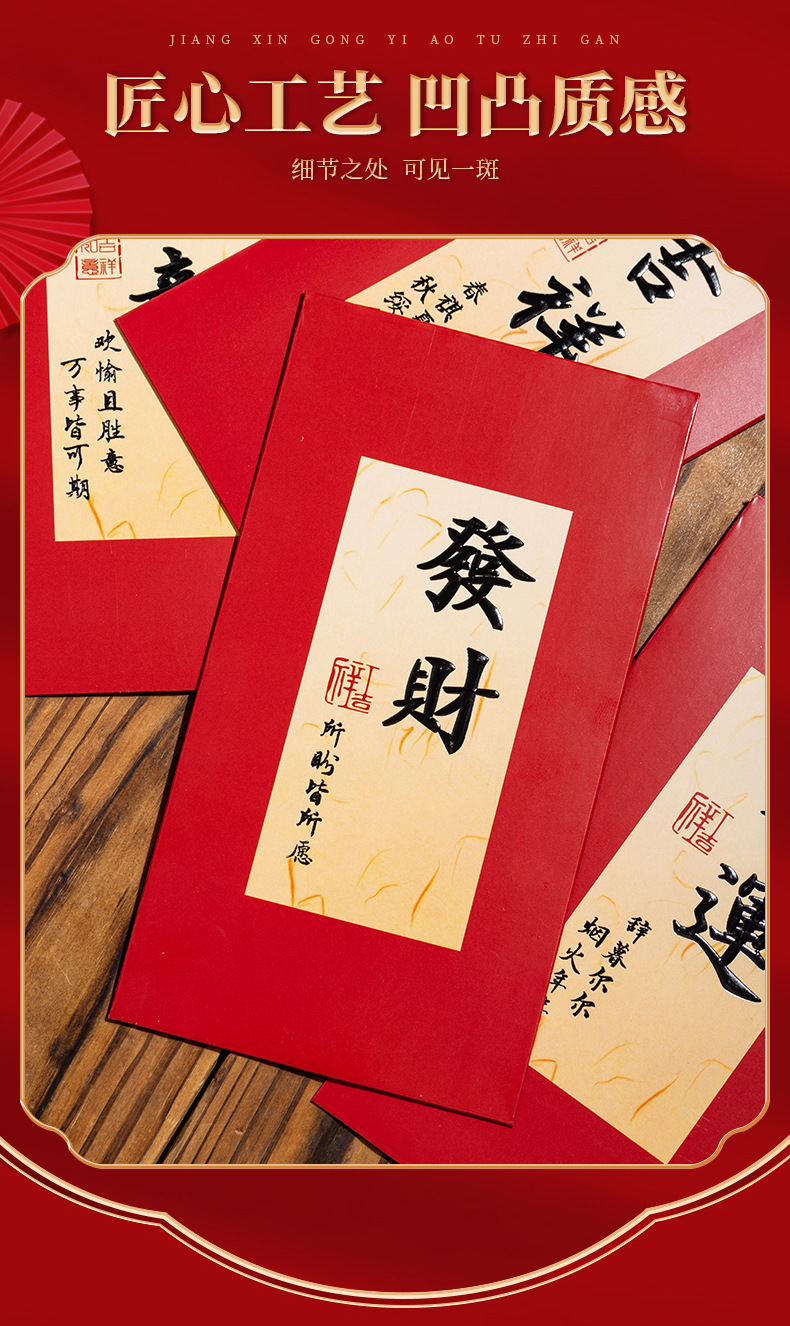 JIANG XIN GONG YI AO TU ZHI GAN
匠心工艺 凹凸质感
细节之处 可见一斑
吉祥
如意
欢愉且胜意
万事皆可期
吉祥
春祺
秋
绥
發財
吉祥
所盼皆所愿
運
吉祥
辞暮尔尔
烟火年年